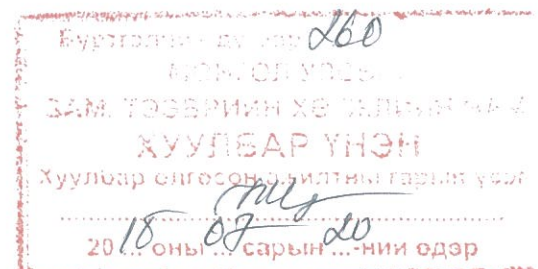 Бүртгэлийн дугаар 260
МОНГОЛ УЛСЫН
ЗАМ, ТЭЭВРИЙН
ХУУЛБАР ҮНЭН
Хуулбар олгосон ажилтны гарын үсэг
2018 оны 07 сарын 20-ний өдөр